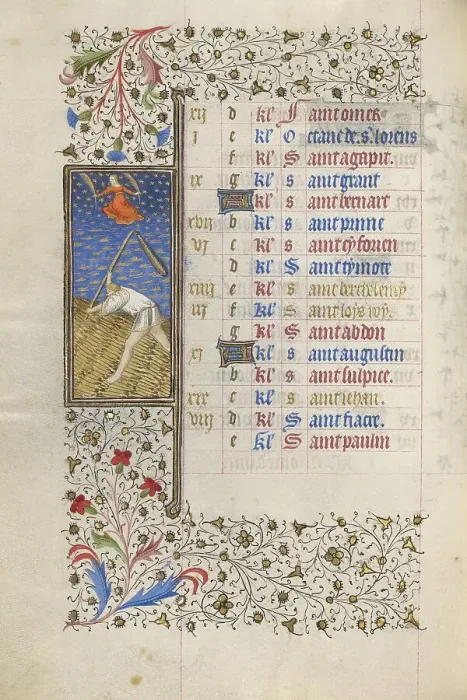 xij d kl' S aint omer
j e kl' O ctaue de s. lorens
f kl' S aint agapit.
ix g kl' s aint grant
A kl' s aint bernart
xvij b kl' s aint prime
vj c kl' s aint cyforien
d kl' S aint tymote
xiiij e kl' s aint berthelemy
iij f kl' s aint loys roy.
g kl' S aint abdon
xj A kl' s aint augustin
b kl' s aint sulpice.
xix c kl' s aint iehan.
viij d kl' S aint fiacre.
e kl' S aint paulin